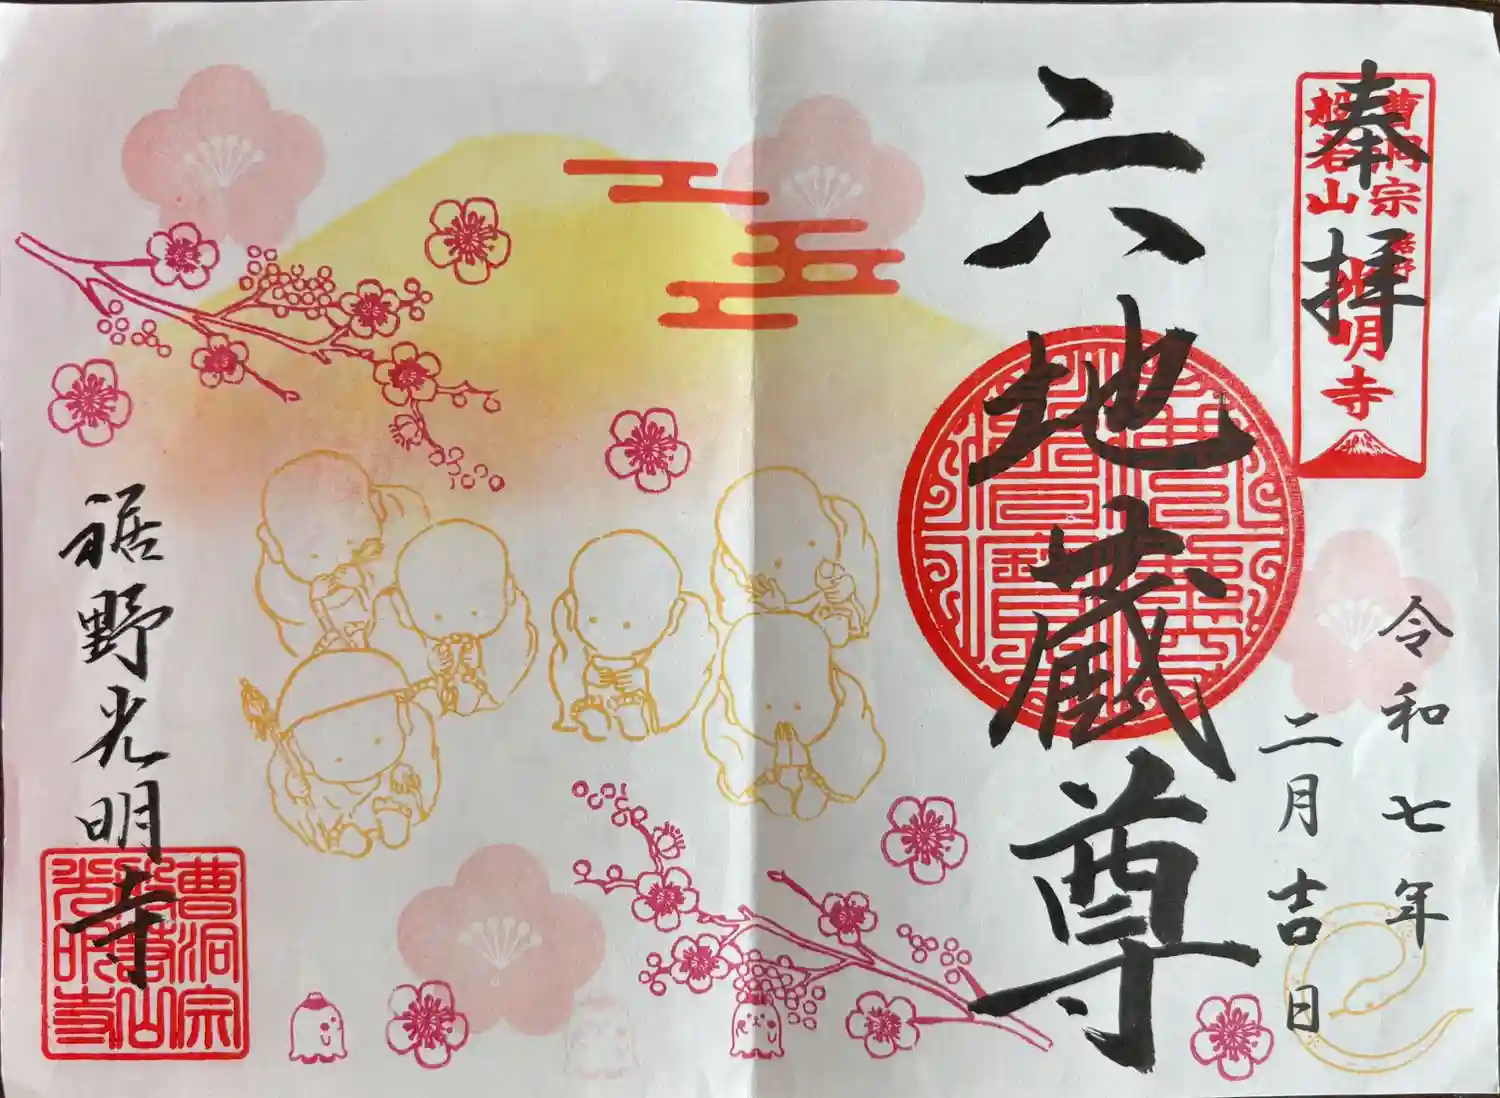 奉拝
曹洞宗
般若山
裾野
光明寺
令和七年
二月吉日
六地蔵尊
裾野光明寺
曹洞宗
般若山
光明寺